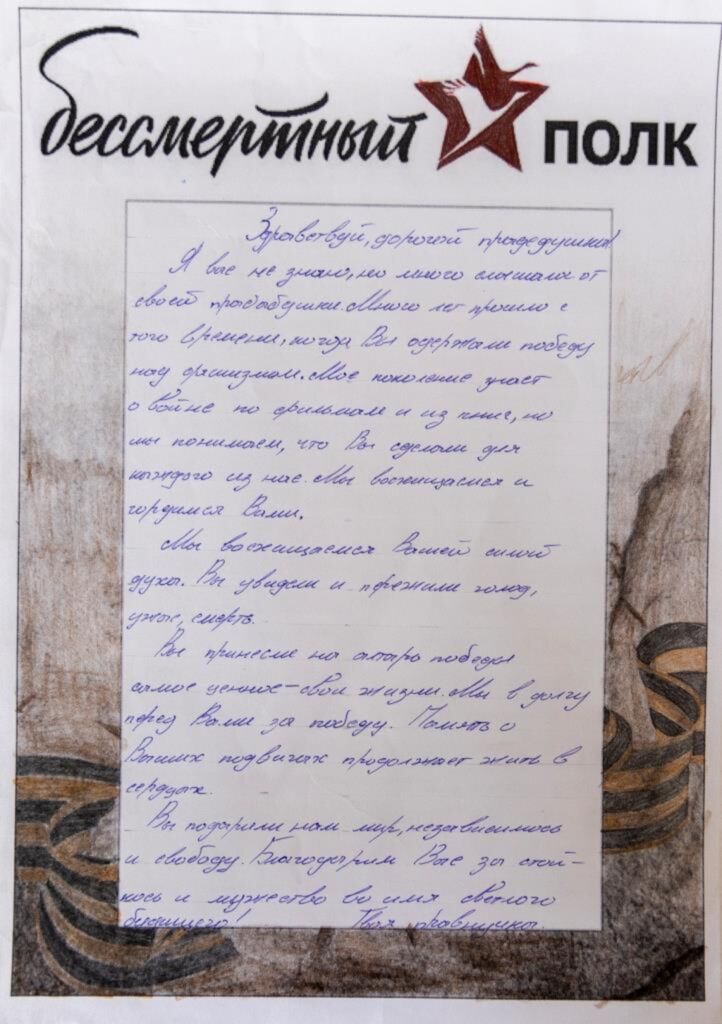 бессмертный ПОЛК
Здравствуй, дорогой прадедушка!
Я вас не знаю, но много слышала от
своей прабабушки. Много лет прошло с
того времени, когда Вы одержали победу
над фашизмом. Мое поколение знает
о войне по фильмам и из книг, но
мы понимаем, что Вы сделали для
каждого из нас. Мы восхищаемся и
гордимся Вами.
Мы восхищаемся Вашей силой
духа. Вы увидели и пережили голод,
ужас, смерть.
Вы принесли на алтарь победы
самое ценное – свои жизни. Мы в долгу
перед Вами за победу. Память о
Ваших подвигах продолжает жить в
сердцах.
Вы подарили нам мир, независимось
и свободу. Благодарим Вас за стой-
кось и мужество во имя светлого
будущего! Твоя правнучка.